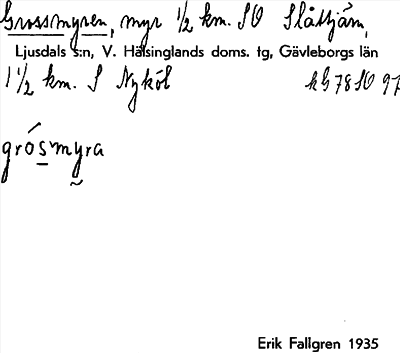 Grossmyren, myr 1/2 km. SO Slåttjärn,
Ljusdals s:n, V. Hälsinglands doms. tg, Gävleborgs län
1 1/2 km. S Nyköl kb 78 SO 97
grósmyra
Erik Fallgren 1935